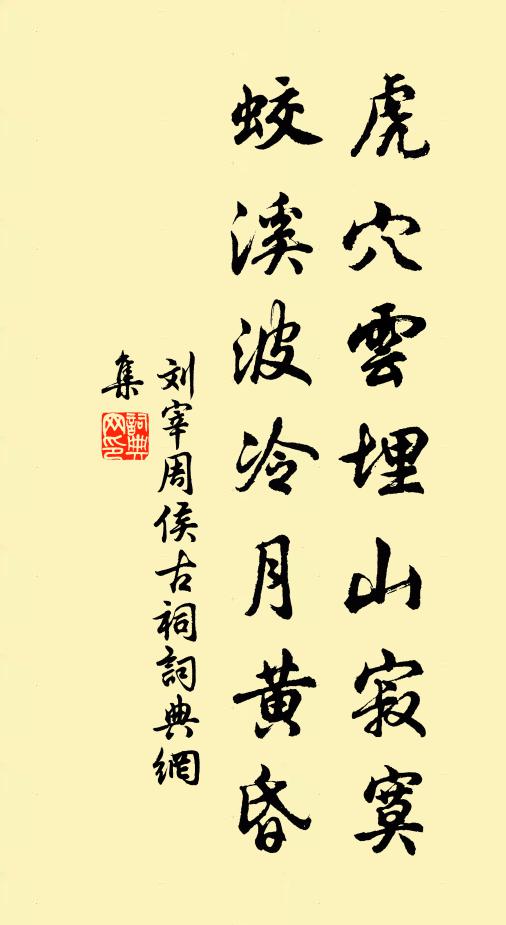 虎穴雲埋山寂寞
蛟溪波冷月黄昏
刘宰周侯古祠詞典網
集
詞典網印